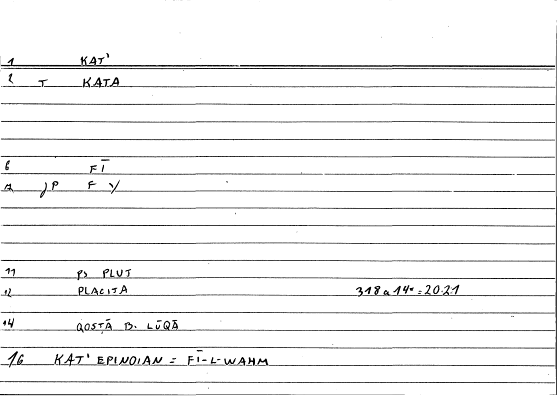 1 KAT'
2 T KATA
6 FĪ
JP F Y
11 PS PLUT
12 PLACITA 318a 14* = 20.21
14 QOSṬĀ B. LŪQĀ
16 KAT' EPINOIAN = FĪ-L-WAHM